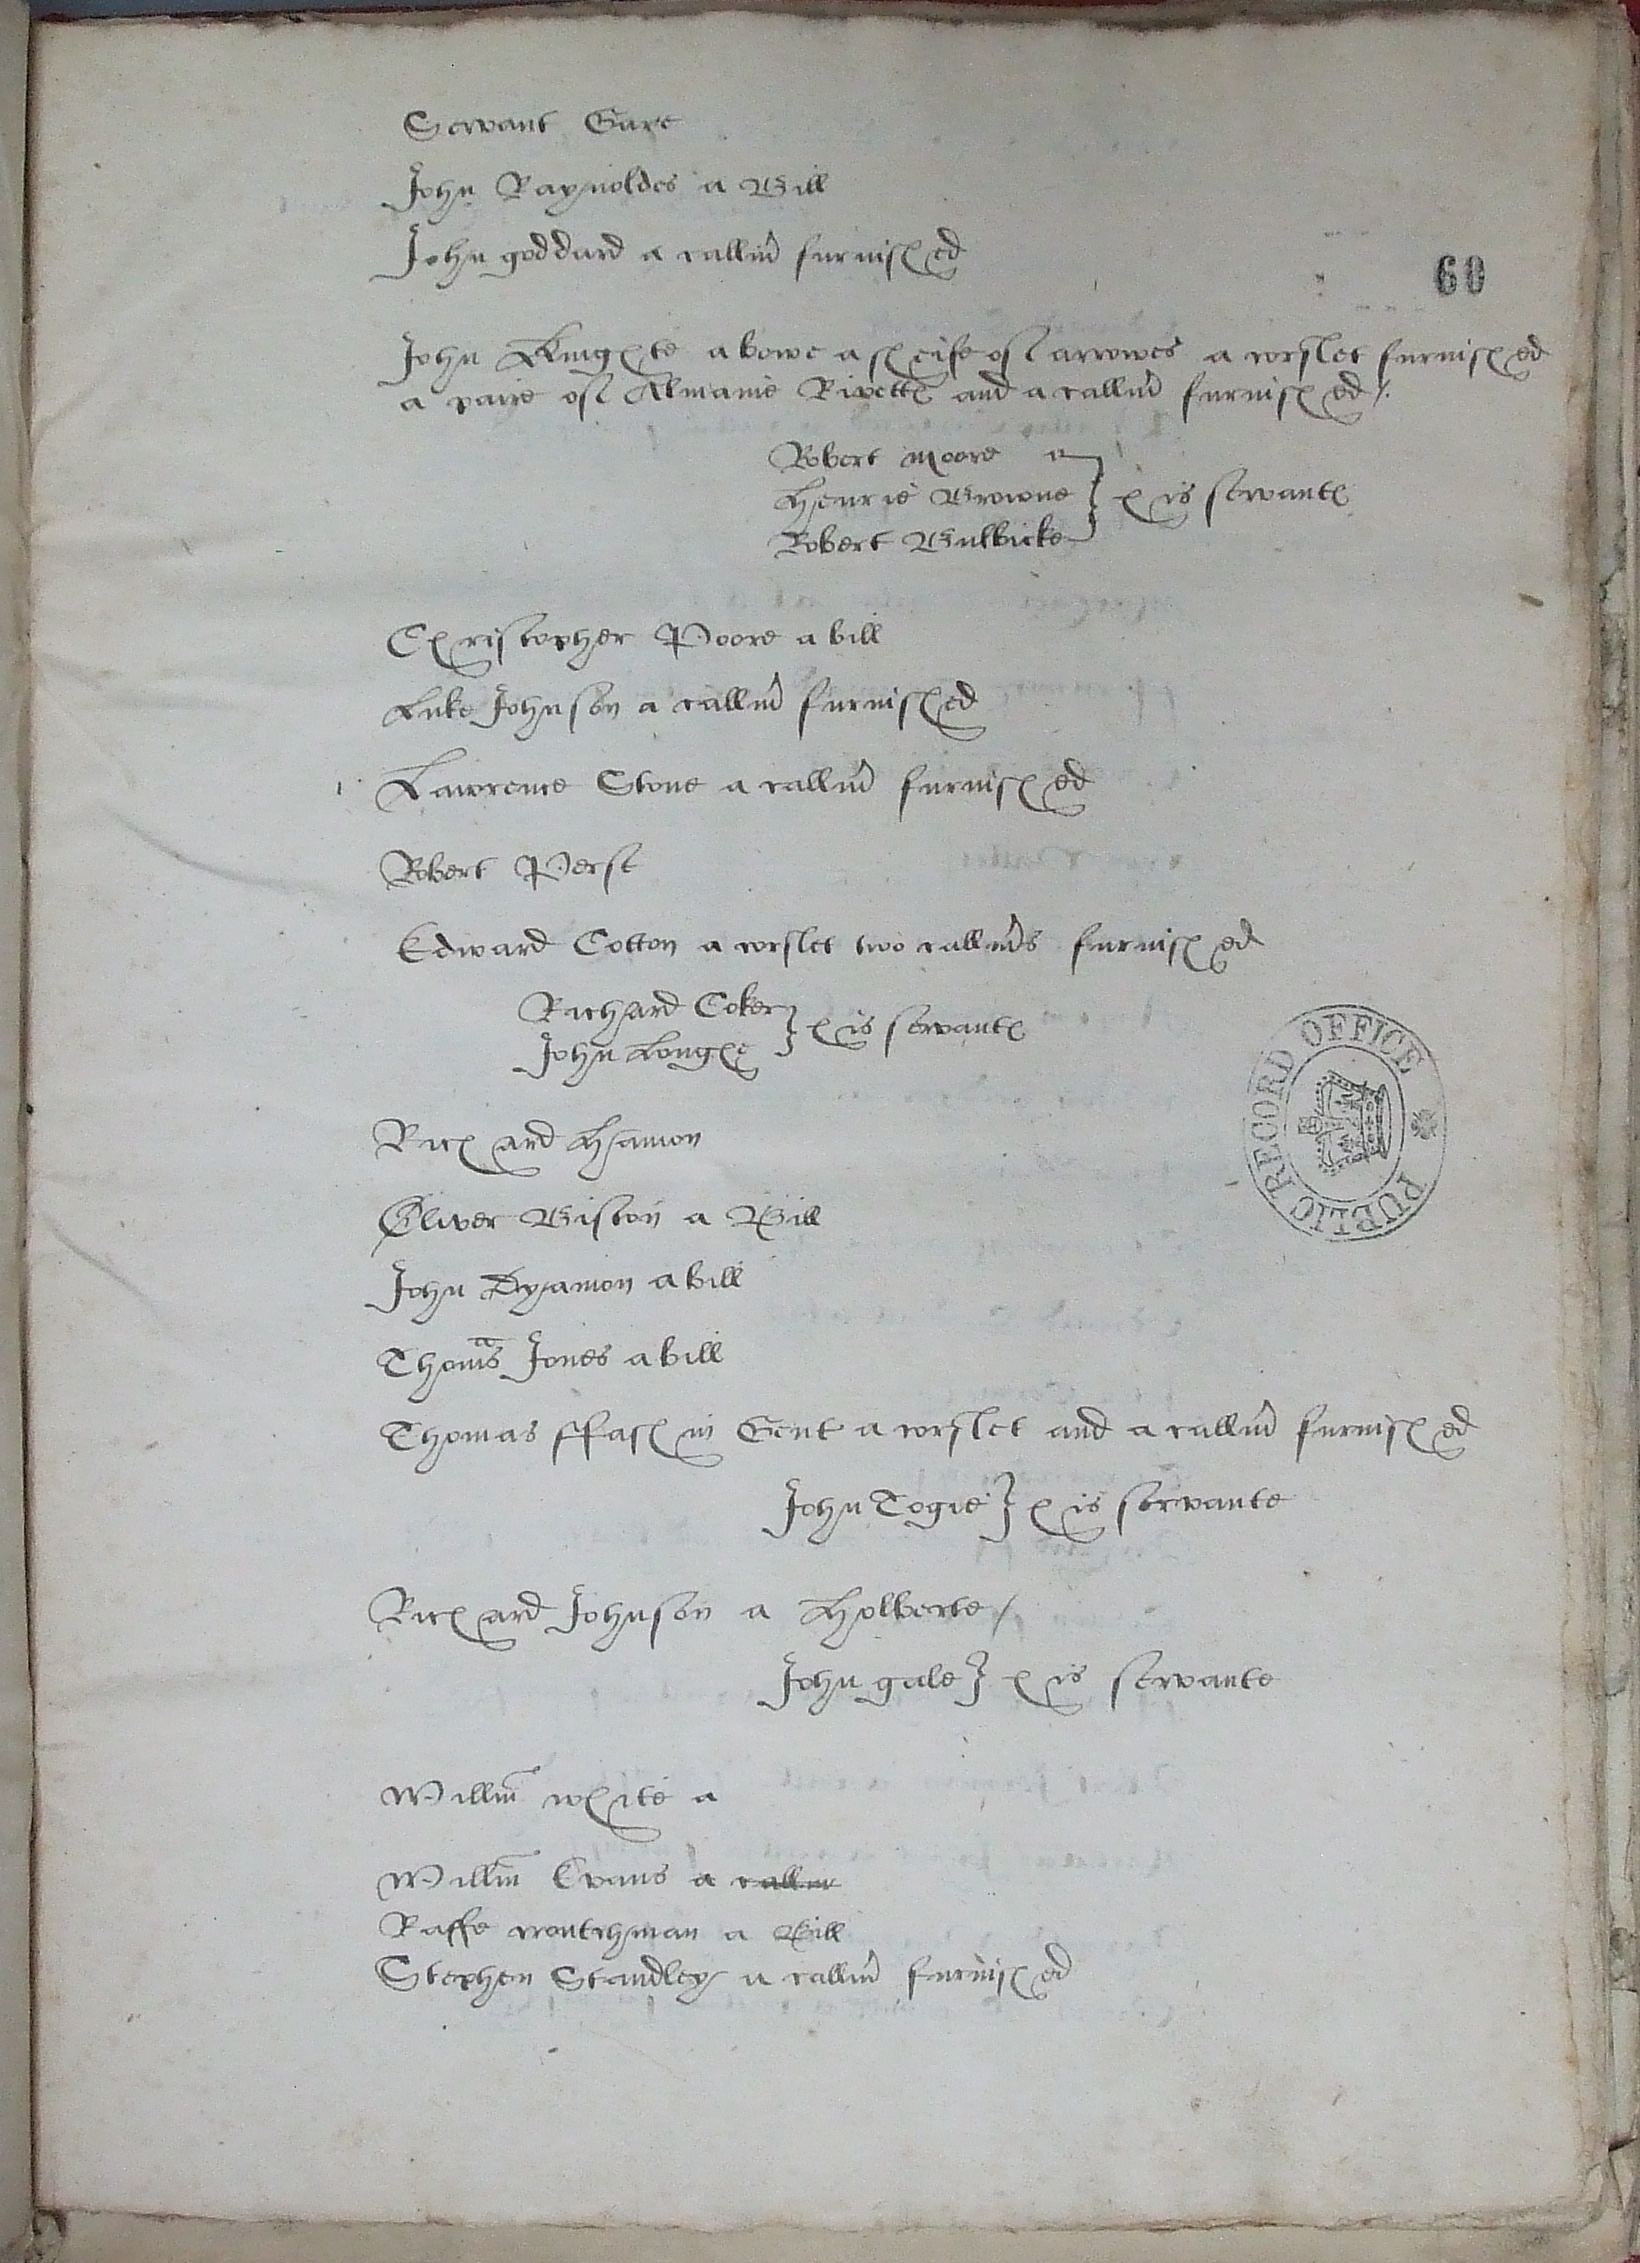 Servant Gare
John Raynoldes a Bill
John goddard a callivr furnished
60
John Knighte a bowe a sheife of arrowes a corslet furnished
a paire of Almanie Rivettes and a callivr furnished /.
Robert Moore
Henrie Browne } his servantes
Robert Bulbicke
Christopher Poore a bill
Luke Johnson a callivr furnished
Lawrence Stone a callivr furnished
Robert Perse
Edward Cotton a corslet two callivrs furnished
Richard Coker } his servantes
John Longhe
Richard Hamon
Oliver Biston a Bill
John Dyamon a bill
Thomas Jones a bill
Thomas ffashin Gent a corslet and a callivr furnished
John Togie } his servante
Richard Johnson a Holberte /
John gale } his servante
Willm white a
Willm Evans a calliv
Raffe wontchman a Bill
Stephen Standley a callivr furnished
PUBLIC RECORD OFFICE